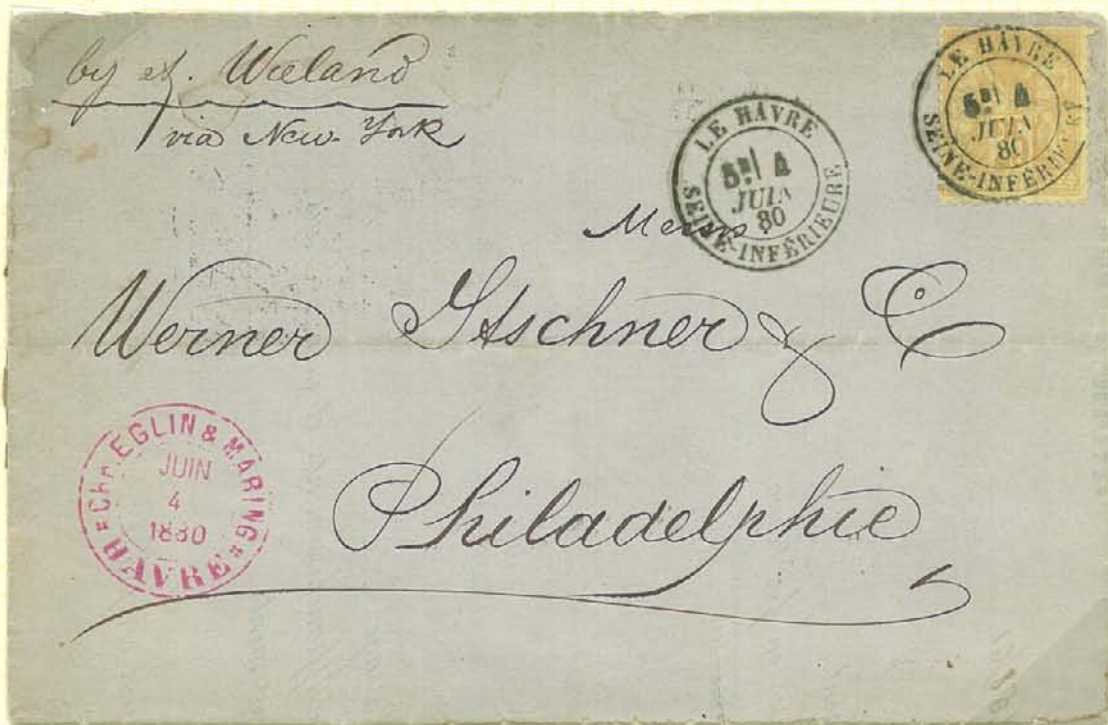 by st. Wieland
via New-York
LE HÂVRE
5E 4
JUIN
80
SEINE-INFÉRIEURE
LE HÂVRE
5E 4
JUIN
80
SEINE-INFÉRIEURE
Messrs.
Werner Itschner & C
Chr. EGLIN & MARING
JUIN
4
1880
HÂVRE
Philadelphie